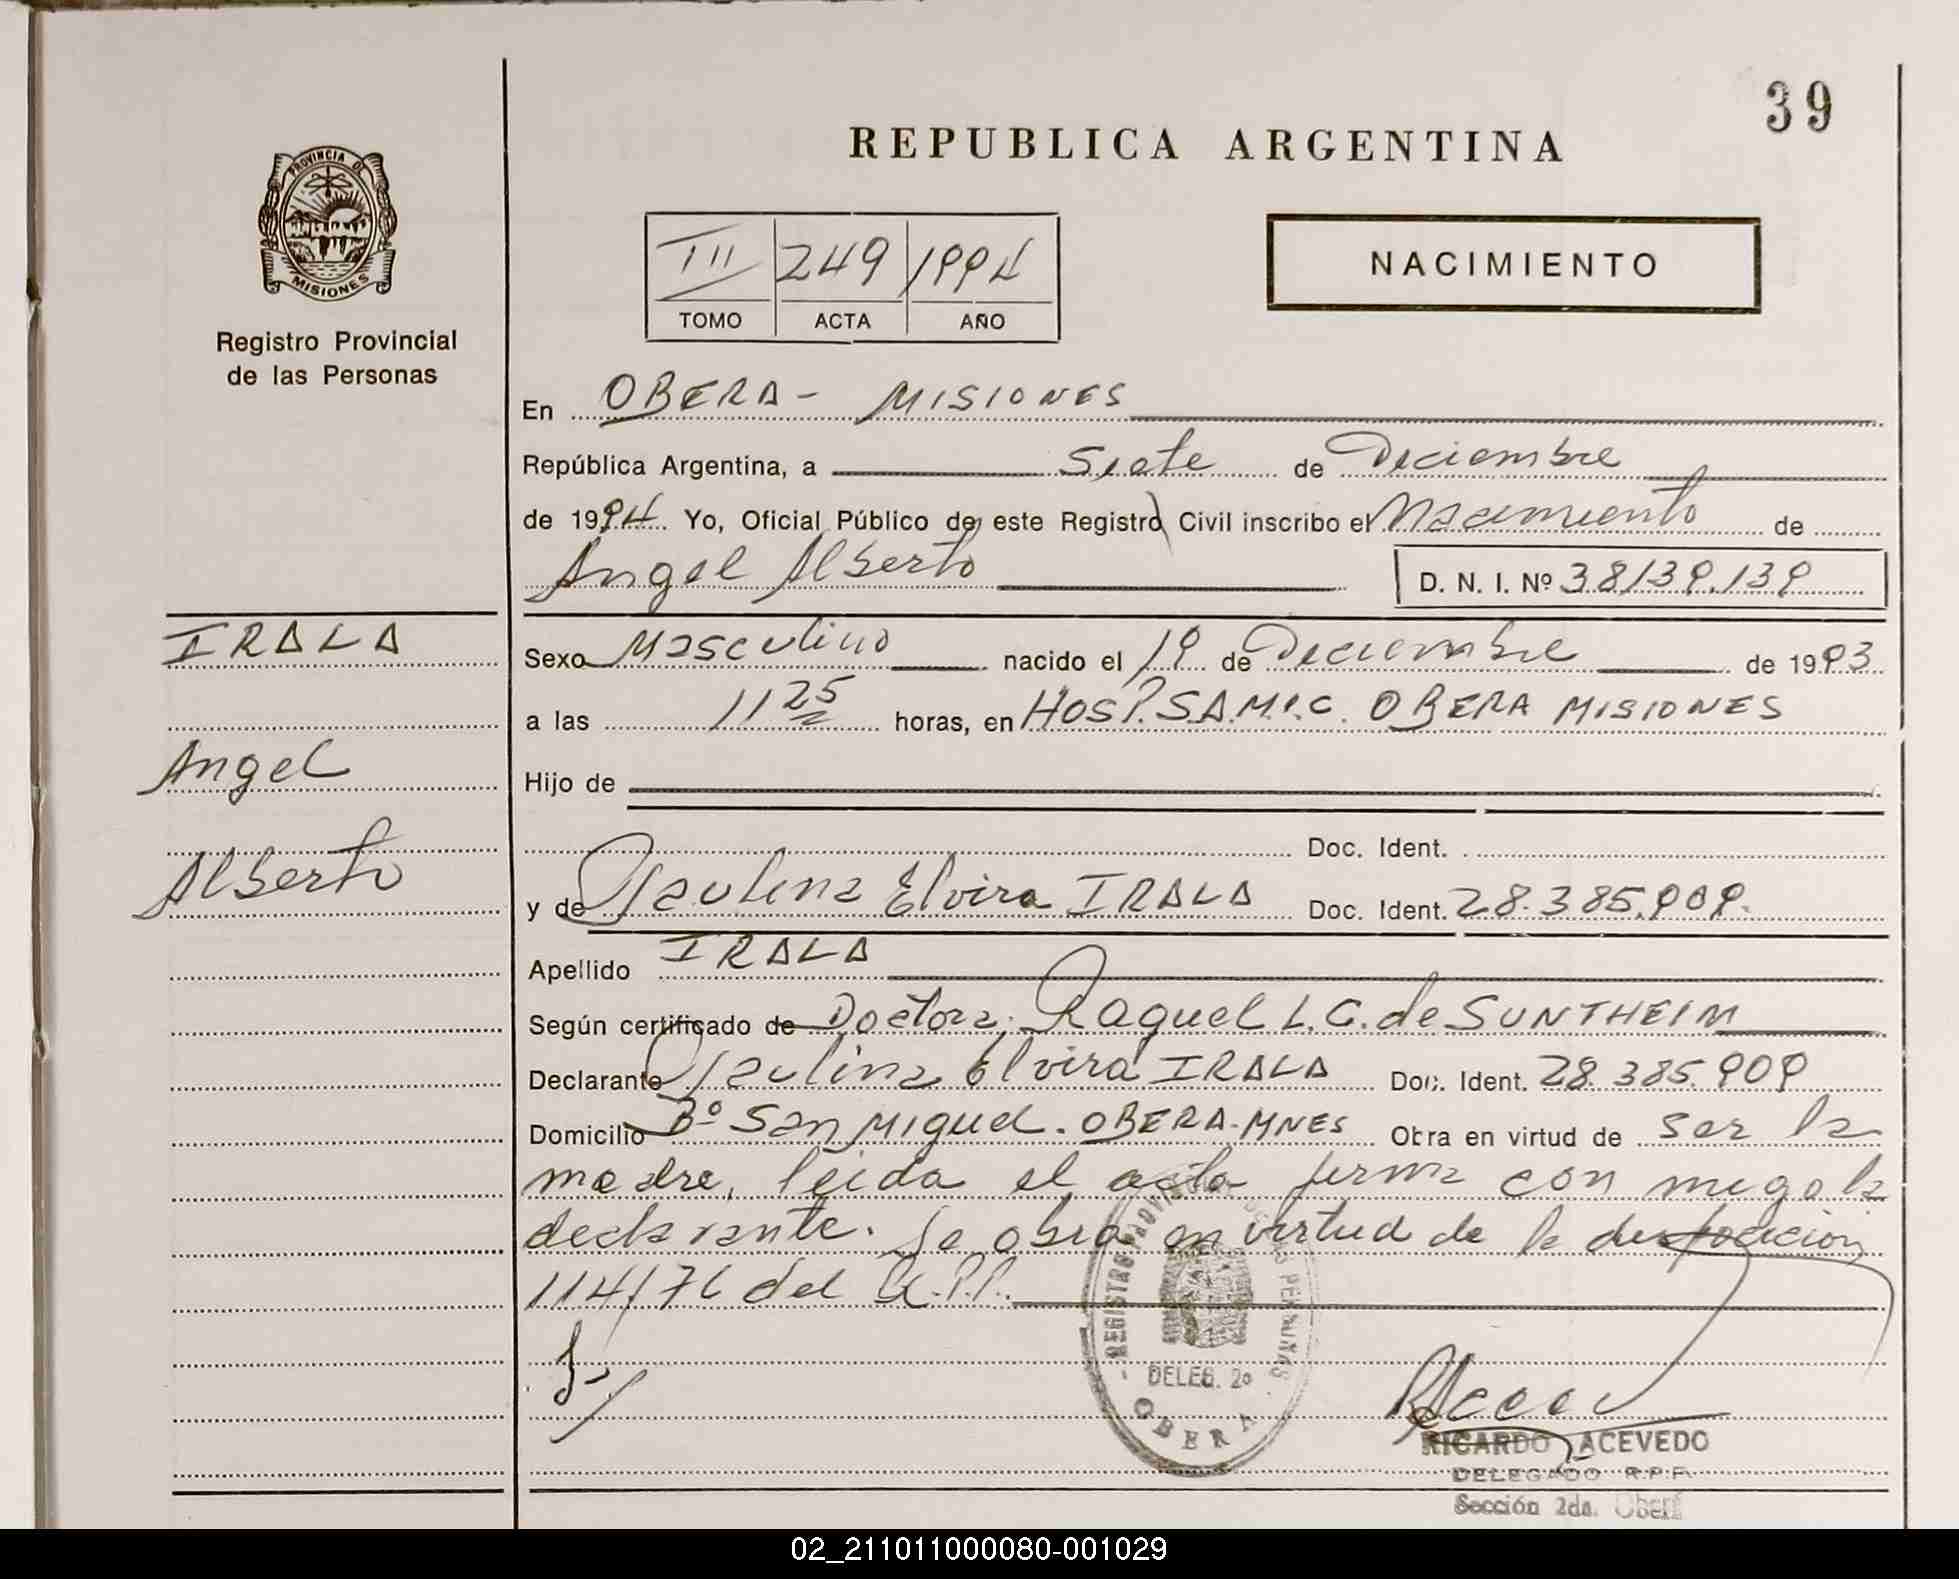 39
REPUBLICA ARGENTINA
PROVINCIA DE
MISIONES
Registro Provincial
de las Personas
III 249 1994
TOMO ACTA AÑO
NACIMIENTO
En OBERA - MISIONES
República Argentina, a siete de Diciembre
de 1994 Yo, Oficial Público de este Registro Civil inscribo el Nacimiento de
Angel Alberto
D. N. I. Nº 38139.139
IRALA
Angel
Alberto
Sexo Masculino nacido el 19 de Diciembre de 1993
a las 11 25 horas, en HOSP. S.A.M.I.C. OBERA MISIONES
Hijo de
Doc. Ident.
y de Paulina Elvira IRALA Doc. Ident. 28.385.909.
Apellido IRALA
Según certificado de Doctora: Raquel L.C. de SUNTHEIM
Declarante Paulina Elvira IRALA Doc. Ident. 28.385.909
Domicilio Bº San Miguel. OBERA-MNES Obra en virtud de ser la
madre, leida el acta firma con migo la
declarante. Se obra en virtud de la disposicion
114/76 del R.P.P.
REGISTRO PROVINCIAL DE LAS PERSONAS
DELEG. 2º
OBERA
RICARDO ACEVEDO
DELEGADO R.P.P.
Sección 2da. Oberá
02_211011000080-001029